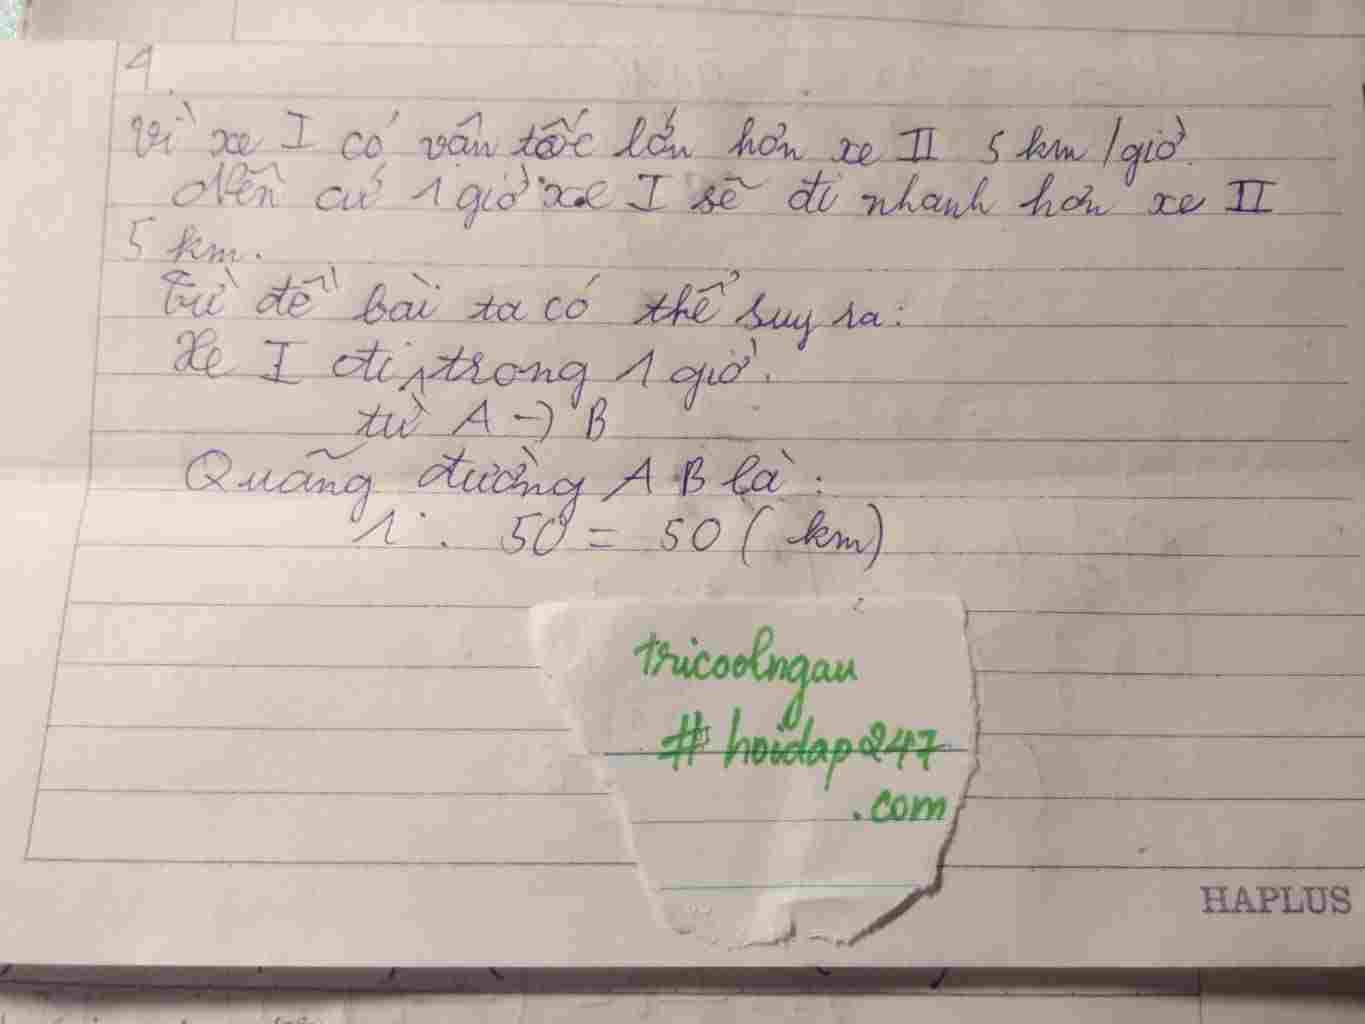 4
Vì xe I có vân tốc lớn hơn xe II 5 km/giờ.
Nên cứ 1 giờ xe I sẽ đi nhanh hơn xe II
5 km.
Từ đề bài ta có thể suy ra:
Xe I đi trong 1 giờ.
từ A -> B
Quãng đường AB là:
1 . 50 = 50 ( km)
tricoolngau
# hoidap247
.com
HAPLUS